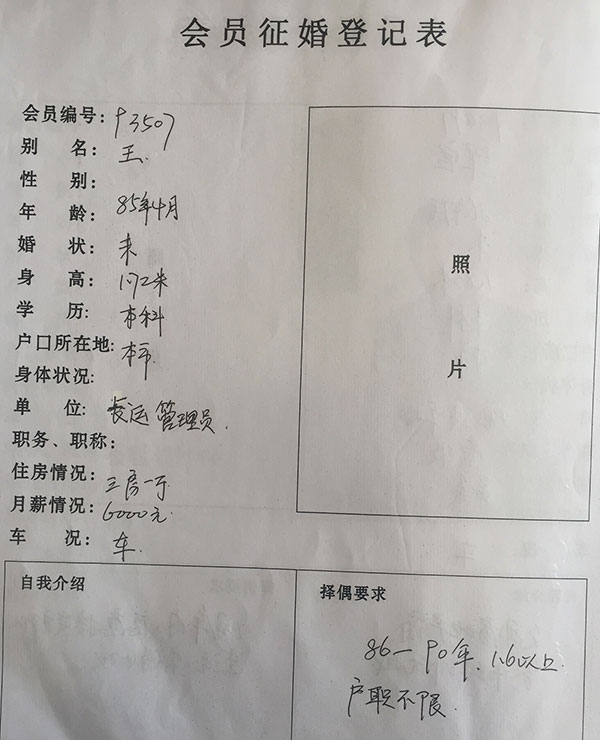 会员征婚登记表
会员编号：93507
别 名：王.
性 别：
年 龄：85年4月
婚 状：未
身 高：1米72米
学 历：本科
户口所在地：本市.
身体状况：
单 位：长运管理员.
职务、职称：
住房情况：三房一厅
月薪情况：6000元.
车 况：车.
照
片
自我介绍
择偶要求
86—90年、1.6以上.
户职不限.